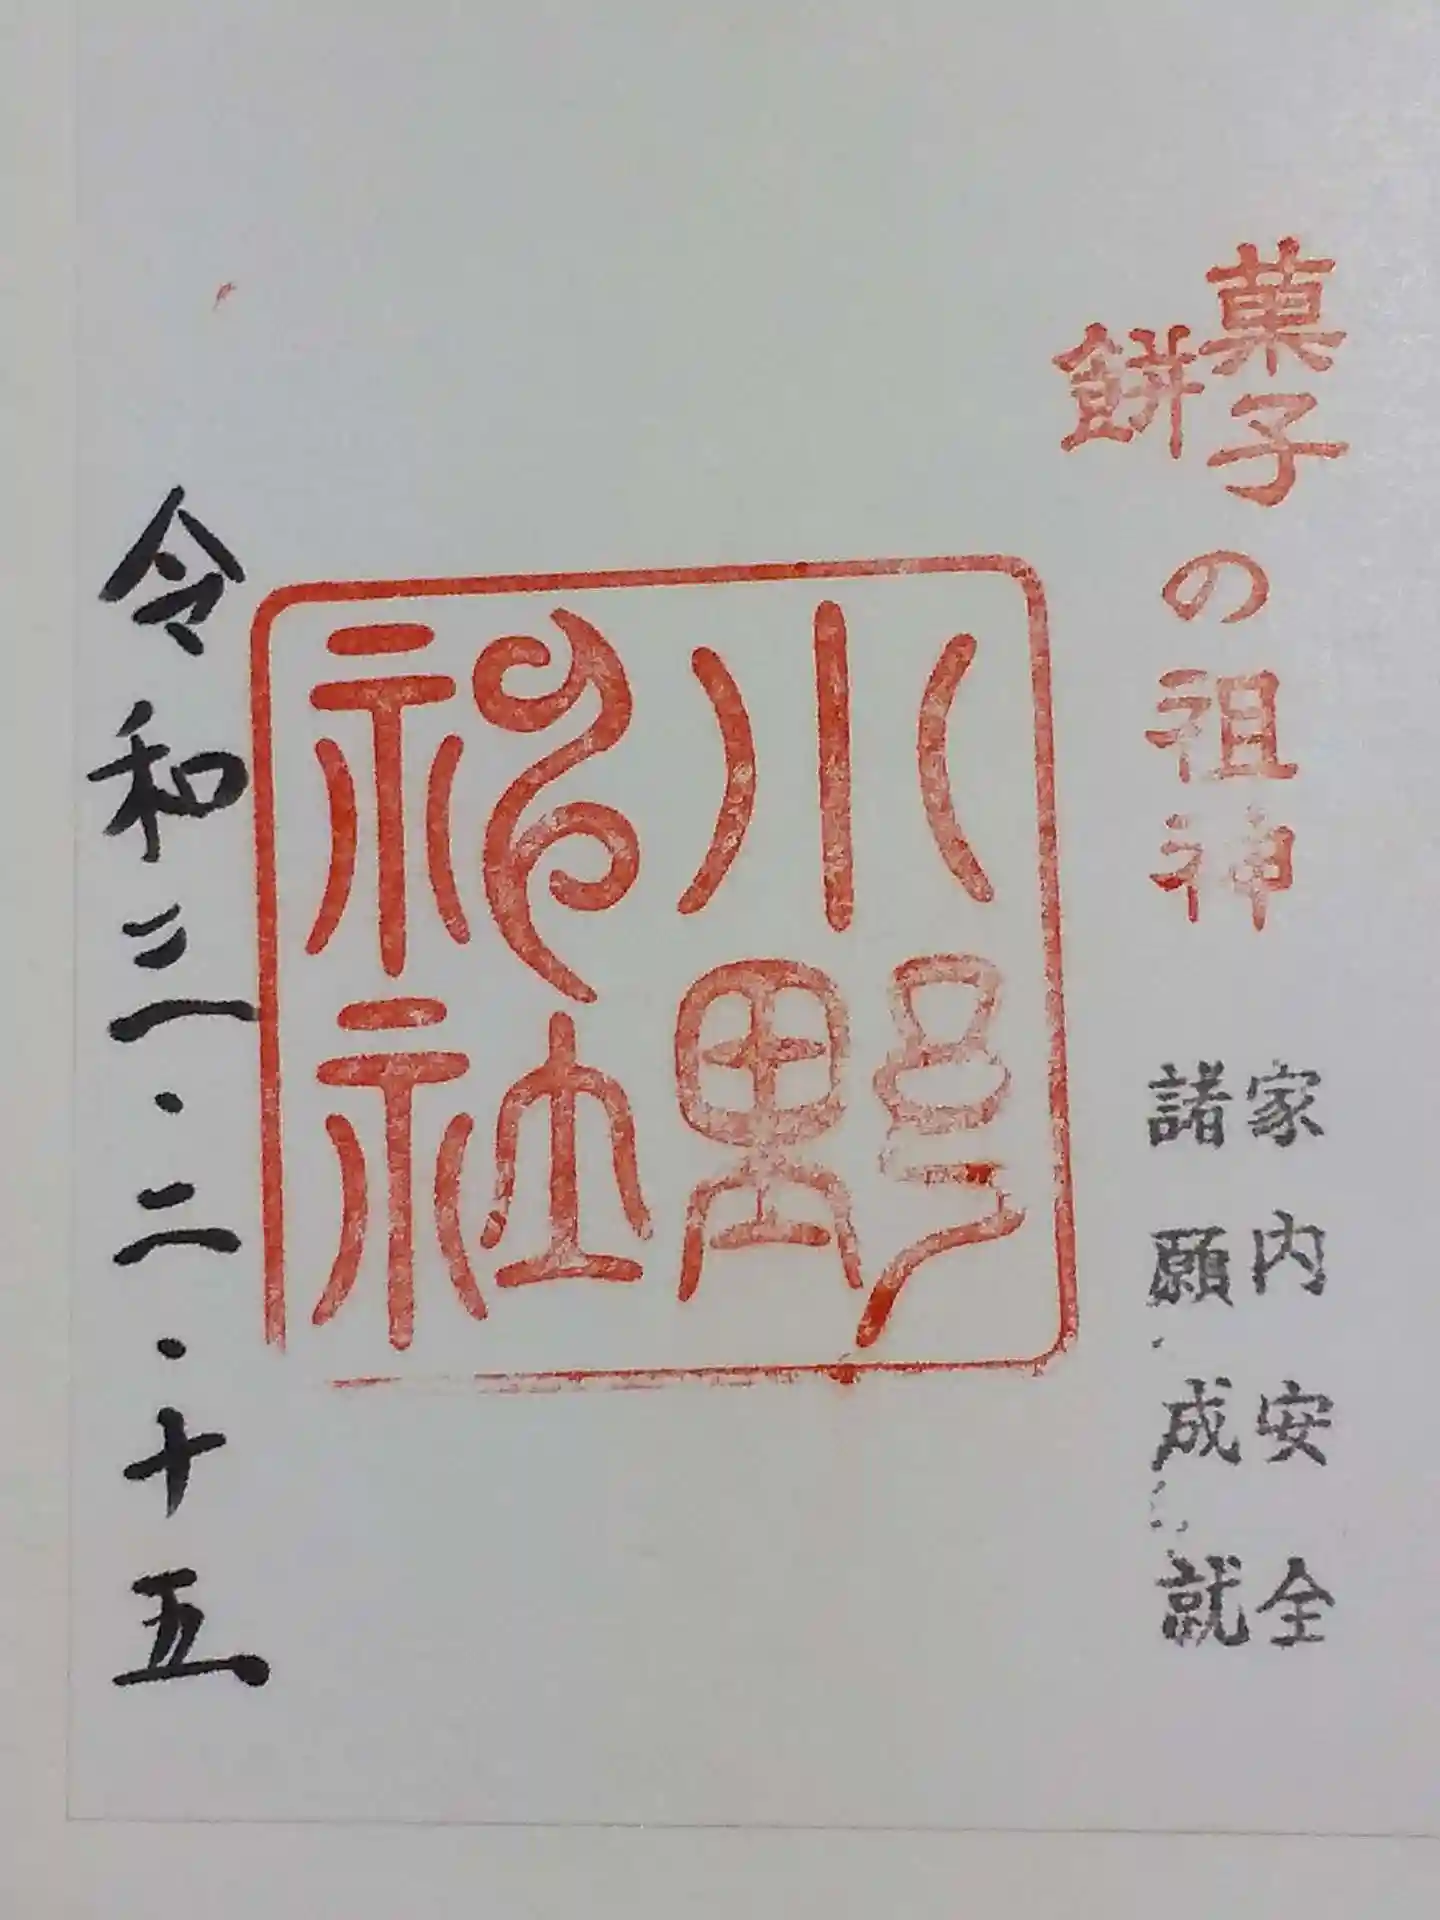 菓子
餅
の祖神
家内安全
諸願成就
小野
神社
令和三・二・十五